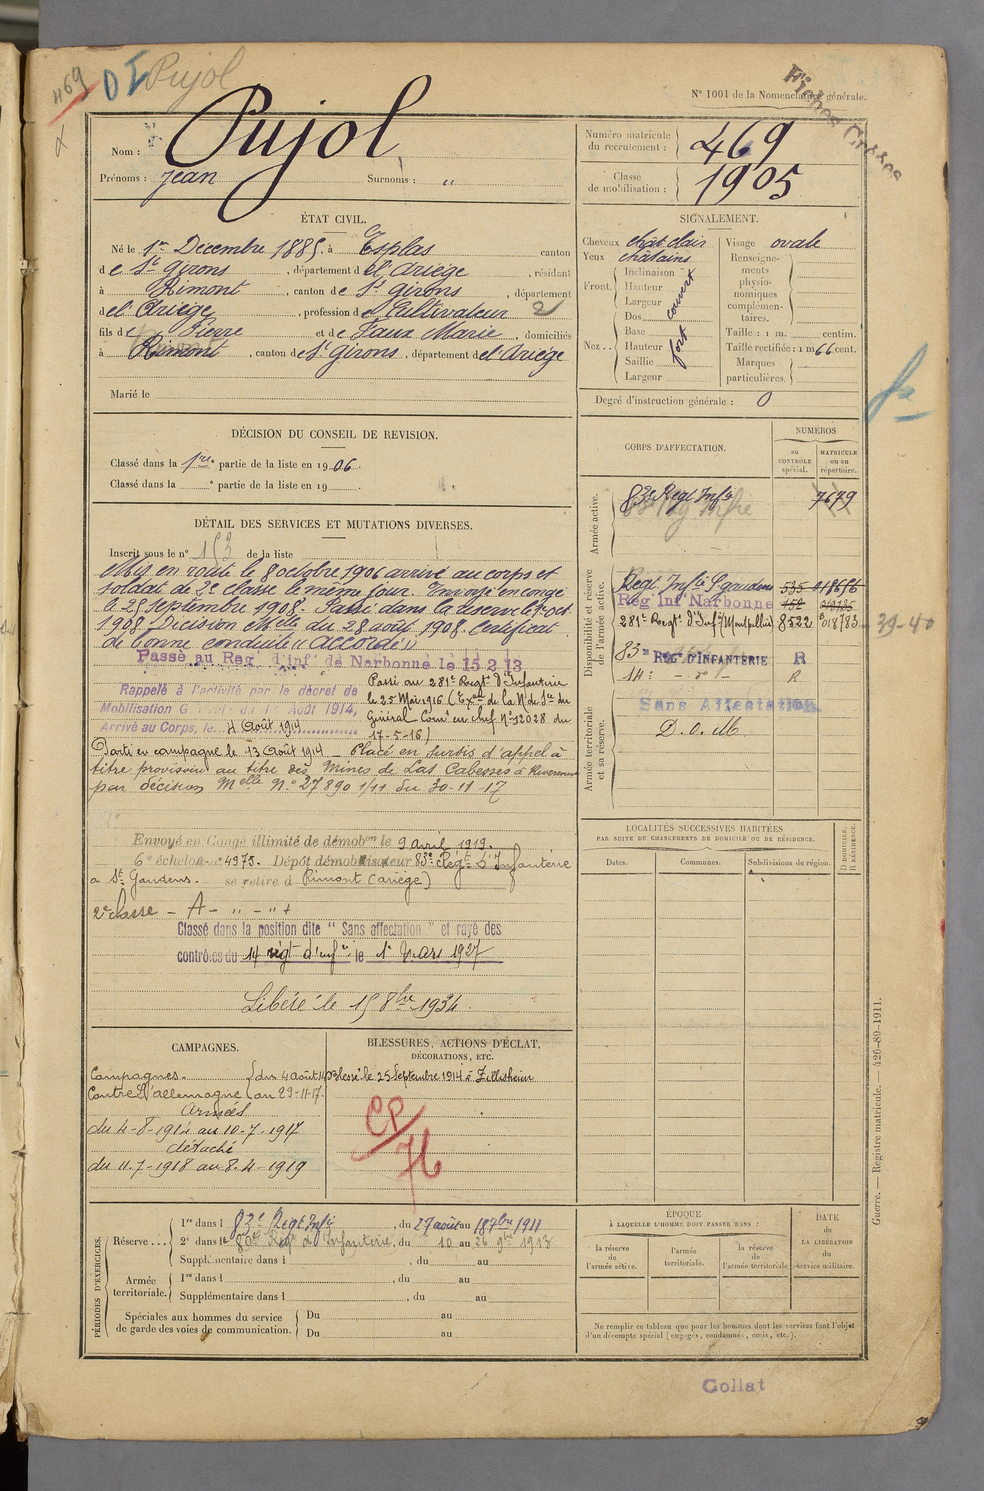 469 DI Pujol
N° 1001 de la Nomenclature générale.
Fiches Crises
Nom : Pujol
Prénoms : Jean Surnoms : "
Numéro matricule du recrutement : 469
Classe de mobilisation : 1905
ÉTAT CIVIL.
Né le 1er Décembre 1885, à Esplas canton
de St Girons, département de l'Ariège, résidant
à Rimont, canton de St Girons, département
de l'Ariège, profession de Cultivateur 2
fils de Pierre et de Faur Marie, domiciliés
à Rimont, canton de St Girons, département de l'Ariège
Marié le
SIGNALEMENT.
Cheveux chât clair
Yeux châtains
Front. Inclinaison x
Hauteur
Largeur
couvert
Nez.. Dos
Base
Hauteur
Saillie
Largeur
fort
Visage ovale
Renseignements physionomiques complémentaires.
Taille : 1 m. centim.
Taille rectifiée : 1 m 66 cent.
Marques particulières.
Degré d'instruction générale : 0
DÉCISION DU CONSEIL DE REVISION.
Classé dans la 1re partie de la liste en 1906.
Classé dans la ° partie de la liste en 19
DÉTAIL DES SERVICES ET MUTATIONS DIVERSES.
Inscrit sous le n° 153 de la liste
Mis en route le 8 octobre 1906 arrivé au corps et
soldat de 2e classe le même jour. Envoyé en congé
le 25 Septembre 1908. Passé dans la réserve le 1er oct.
1908 Décision Melle du 28 août 1908. Certificat
de bonne conduite "Accordé"
Passé au Reg. d'inf. de Narbonne le 15 2 13
Rappelé à l'activité par le décret de
Mobilisation Générale du 1er Août 1914,
Arrivé au Corps, le 4 Août 1914
Passé au 281e Regt d'Infanterie
le 25 Mai 1916 (Exon de la N. de Sce du
Général Comt en chef N° 12028 du
17-5-16)
Parti en campagne le 13 Août 1914 _ Placé en sursis d'appel à
titre provisoire au titre des Mines de Las Cabesses à Riverenert
par décision Melle N° 27890 1/11 du 30-11-17
Envoyé en Congé illimité de démobon le 9 avril 1919.
6e échelon n° 4975. Dépôt démobilisateur 83e Régt d'Infanterie
à St Gaudens. se retire à Rimont (Ariège)
2e classe - A - " - " +
Classé dans la position dite "Sans affectation" et rayé des
contrôles du 14 régt d'infie le 1er Mars 1927
Libéré le 15 8bre 1934
CORPS D'AFFECTATION.
NUMÉROS
au CONTRÔLE spécial.
MATRICULE ou au répertoire.
Armée active.
83e Regt Infie 7679
Disponibilité et réserve de l'armée active.
Regt Infie St gaudens 535 018656
Reg Inf Narbonne 452
281e Regt d'Infie (Montpellier) 8522 018783 39-40
83e REGt D'INFANTERIE R
14e - do - R
Armée territoriale et sa réserve.
Sans Affectation
D. O. M.
LOCALITÉS SUCCESSIVES HABITÉES
PAR SUITE DE CHANGEMENTS DE DOMICILE OU DE RÉSIDENCE.
Dates. Communes. Subdivisions de région.
D DOMICILE. R RÉSIDENCE.
CAMPAGNES.
Campagnes. du 4 août 14
Contre l'allemagne au 29-11-17
Armées
du 4-8-1914 au 10-7-1917
détaché
du 11-7-1918 au 8-4-1919
BLESSURES, ACTIONS D'ÉCLAT,
DÉCORATIONS, ETC.
Blessé le 25 Septembre 1914 à Zillisheim
CP/76
PÉRIODES D'EXERCICES.
Réserve... 1re dans l 83e Régt Infie, du 27 août au 18 7bre 1911
2e dans le 80e Regt d'Infanterie, du 10 au 26 9bre 1913
Supplémentaire dans l , du au
Armée territoriale. 1re dans l , du au
Supplémentaire dans l , du au
Spéciales aux hommes du service de garde des voies de communication. Du au
Du au
ÉPOQUE
À LAQUELLE L'HOMME DOIT PASSER DANS :
la réserve de l'armée active.
l'armée territoriale.
la réserve de l'armée territoriale
DATE de LA LIBÉRATION du service militaire.
Ne remplir ce tableau que pour les hommes dont les services font l'objet
d'un décompte spécial (engagés, condamnés, omis, etc.).
Guerre. — Registre matricule. — 426-89-1911.
Collat